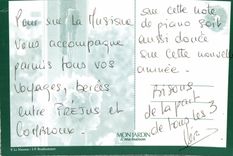 Pour que la Musique
vous accompagne
parmis tous vos
voyages, bercés
entre FRÉJUS et
sur cette note
de piano soit
aussi douce
sur cette nouvelle
année.
Bisous
de la part
de tous les 3
MON JARDIN